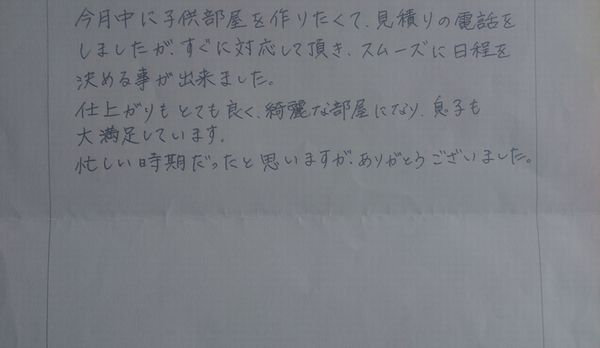 今月中に子供部屋を作りたくて、見積りの電話を
しましたが、すぐに対応して頂き、スムーズに日程を
決める事が出来ました。
仕上がりもとても良く、綺麗な部屋になり、息子も
大満足しています。
忙しい時期だったと思いますが、ありがとうございました。